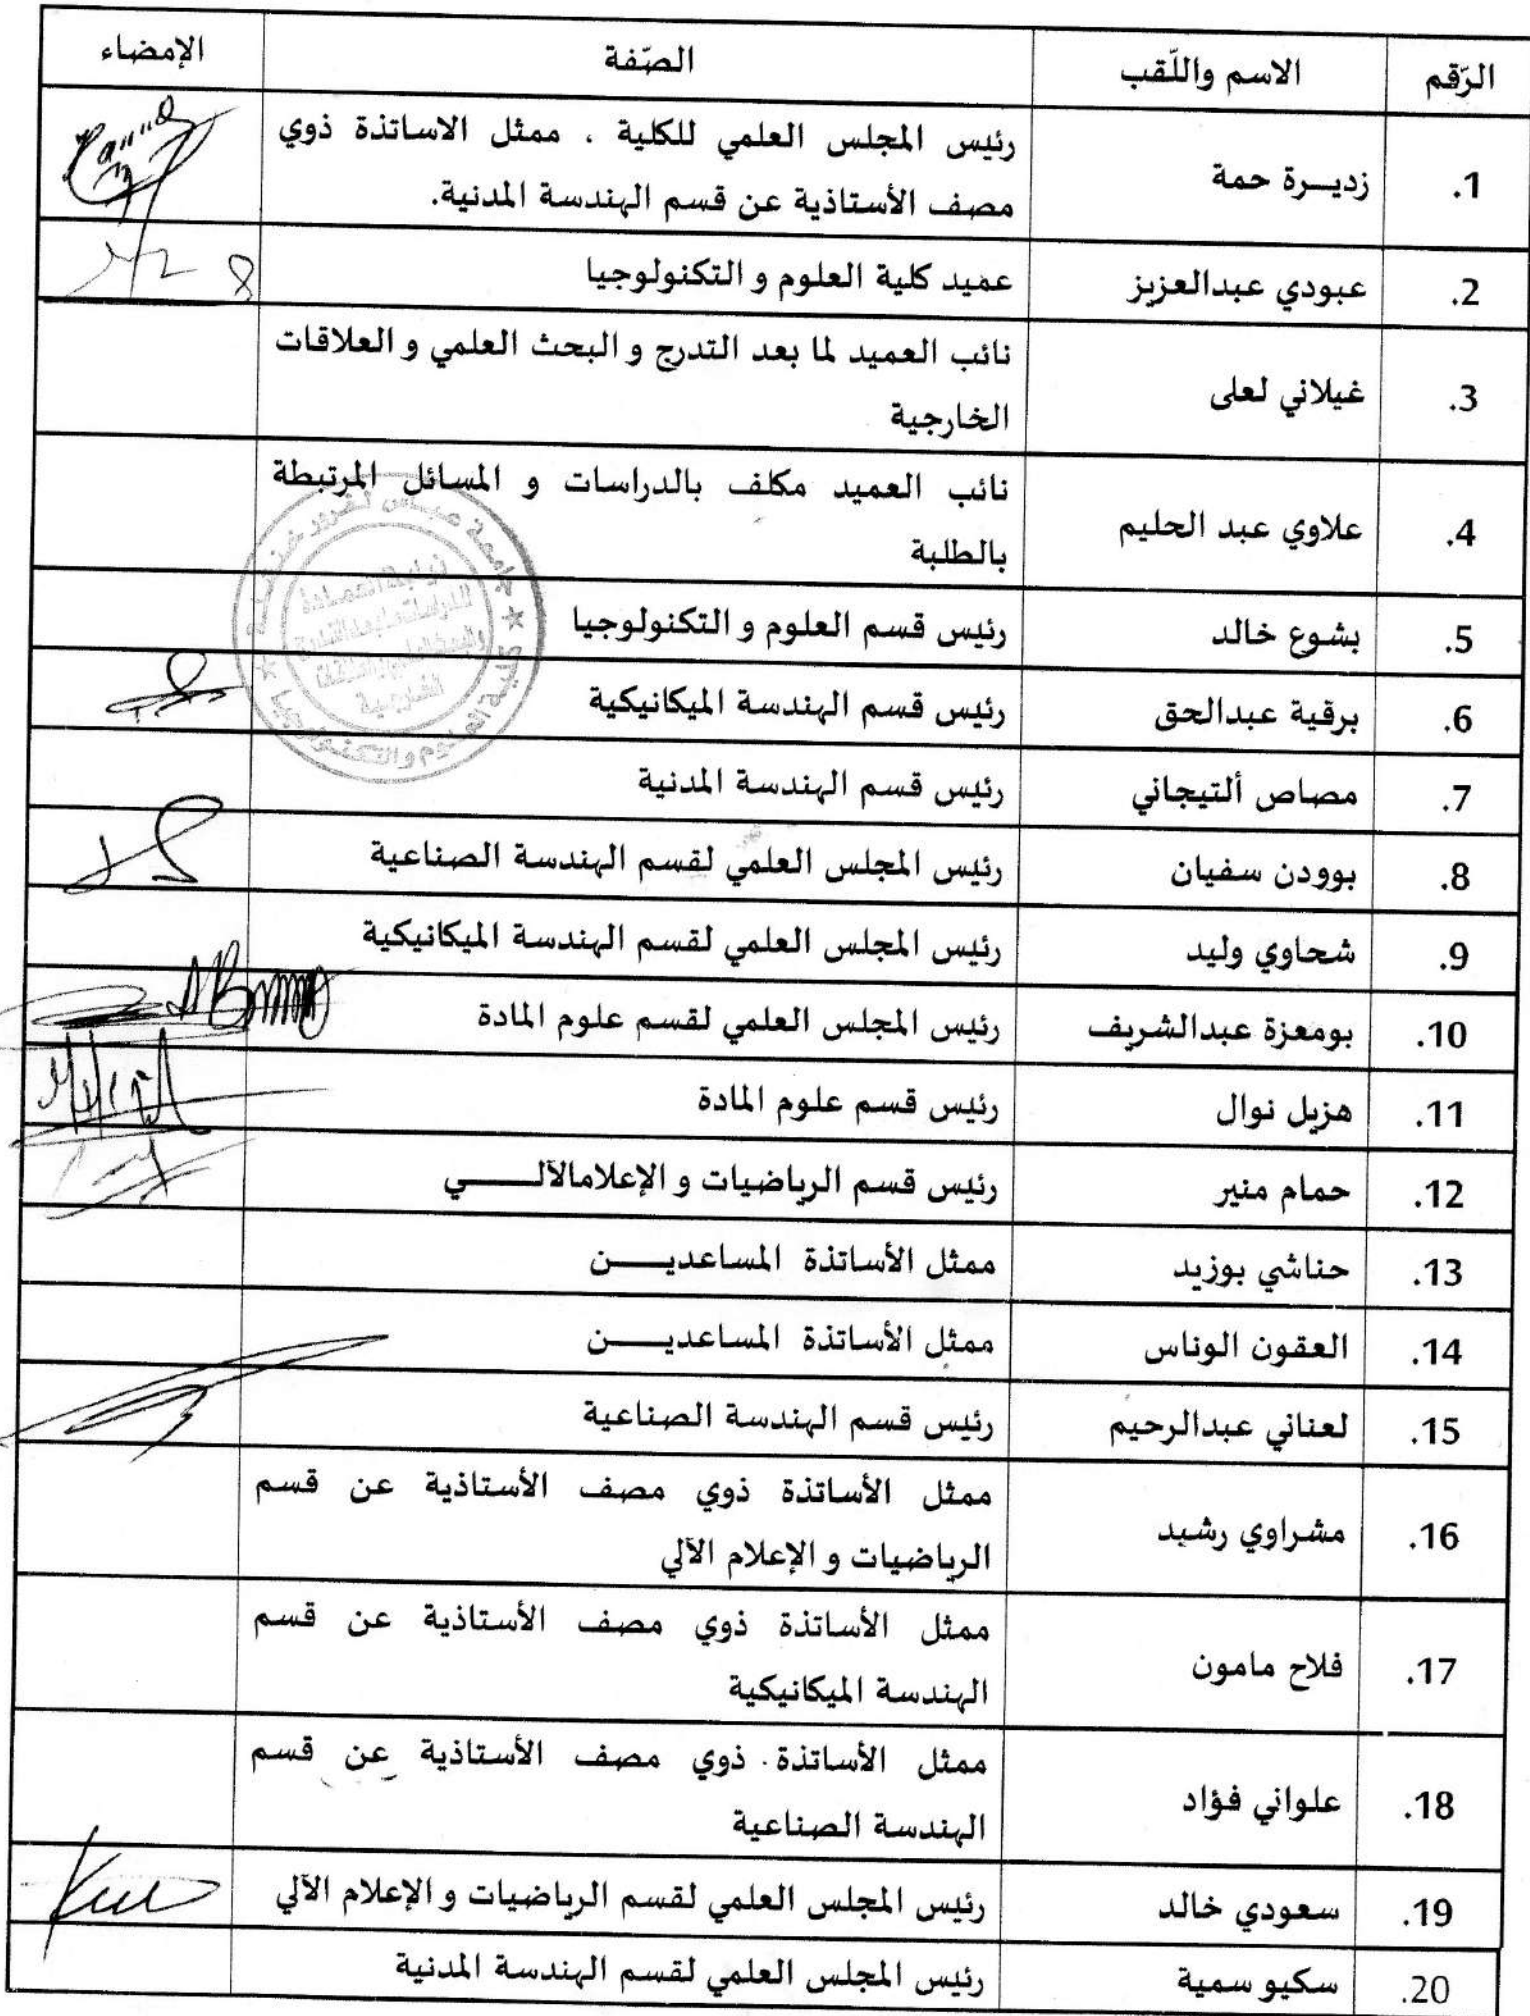 الرّقم الاسم واللّقب الصّفة الإمضاء
1. زديـــرة حمة رئيس المجلس العلمي للكلية ، ممثل الاساتذة ذوي
مصف الأستاذية عن قسم الهندسة المدنية.
2. عبودي عبدالعزيز عميد كلية العلوم و التكنولوجيا
3. غيلاني لعلى نائب العميد لما بعد التدرج و البحث العلمي و العلاقات
الخارجية
4. علاوي عبد الحليم نائب العميد مكلف بالدراسات و المسائل المرتبطة
بالطلبة
5. بشوع خالد رئيس قسم العلوم و التكنولوجيا
6. برقية عبدالحق رئيس قسم الهندسة الميكانيكية
7. مصاص ألتيجاني رئيس قسم الهندسة المدنية
8. بوودن سفيان رئيس المجلس العلمي لقسم الهندسة الصناعية
9. شحاوي وليد رئيس المجلس العلمي لقسم الهندسة الميكانيكية
10. بومعزة عبدالشريف رئيس المجلس العلمي لقسم علوم المادة
11. هزيل نوال رئيس قسم علوم المادة
12. حمام منير رئيس قسم الرياضيات و الإعلامالآلــــــي
13. حناشي بوزيد ممثل الأساتذة المساعديـــــن
14. العقون الوناس ممثل الأساتذة المساعديـــــن
15. لعناني عبدالرحيم رئيس قسم الهندسة الصناعية
16. مشراوي رشيد ممثل الأساتذة ذوي مصف الأستاذية عن قسم
الرياضيات و الإعلام الآلي
17. فلاح مامون ممثل الأساتذة ذوي مصف الأستاذية عن قسم
الهندسة الميكانيكية
18. علواني فؤاد ممثل الأساتذة ذوي مصف الأستاذية عن قسم
الهندسة الصناعية
19. سعودي خالد رئيس المجلس العلمي لقسم الرياضيات و الإعلام الآلي
20. سكيو سمية رئيس المجلس العلمي لقسم الهندسة المدنية